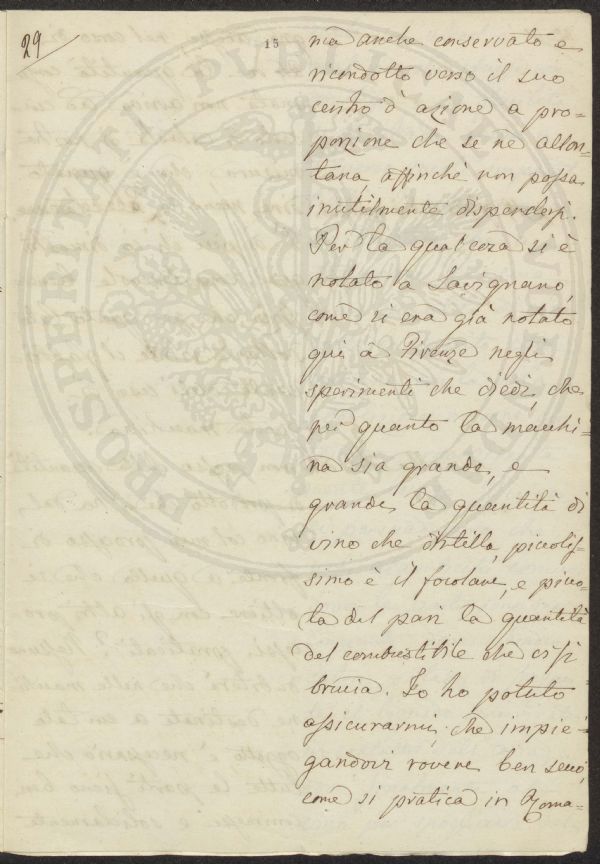 29
15
ma anche conservato e
ricondotto verso il suo
centro d'azione a pro=
porzione che se ne allon=
tana affinchè non possa
inutilmente disperdersi.
Per la qual cosa si è
notato a Savignano,
come si era già notato
qui a Firenze negli
sperimenti che diedi, che
per quanto la macchi=
na sia grande, e
grande la quantità di
vino che distilla, piccolis=
simo è il focolare, e picco=
la del pari la quantità
del combustibile che ci si
brucia. Io ho potuto
assicurarmi, che impie=
gandovi rovere ben secco,
come si pratica in Roma=
PROSPERITATI PUBLICAE